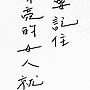 要記住
亮的女人就